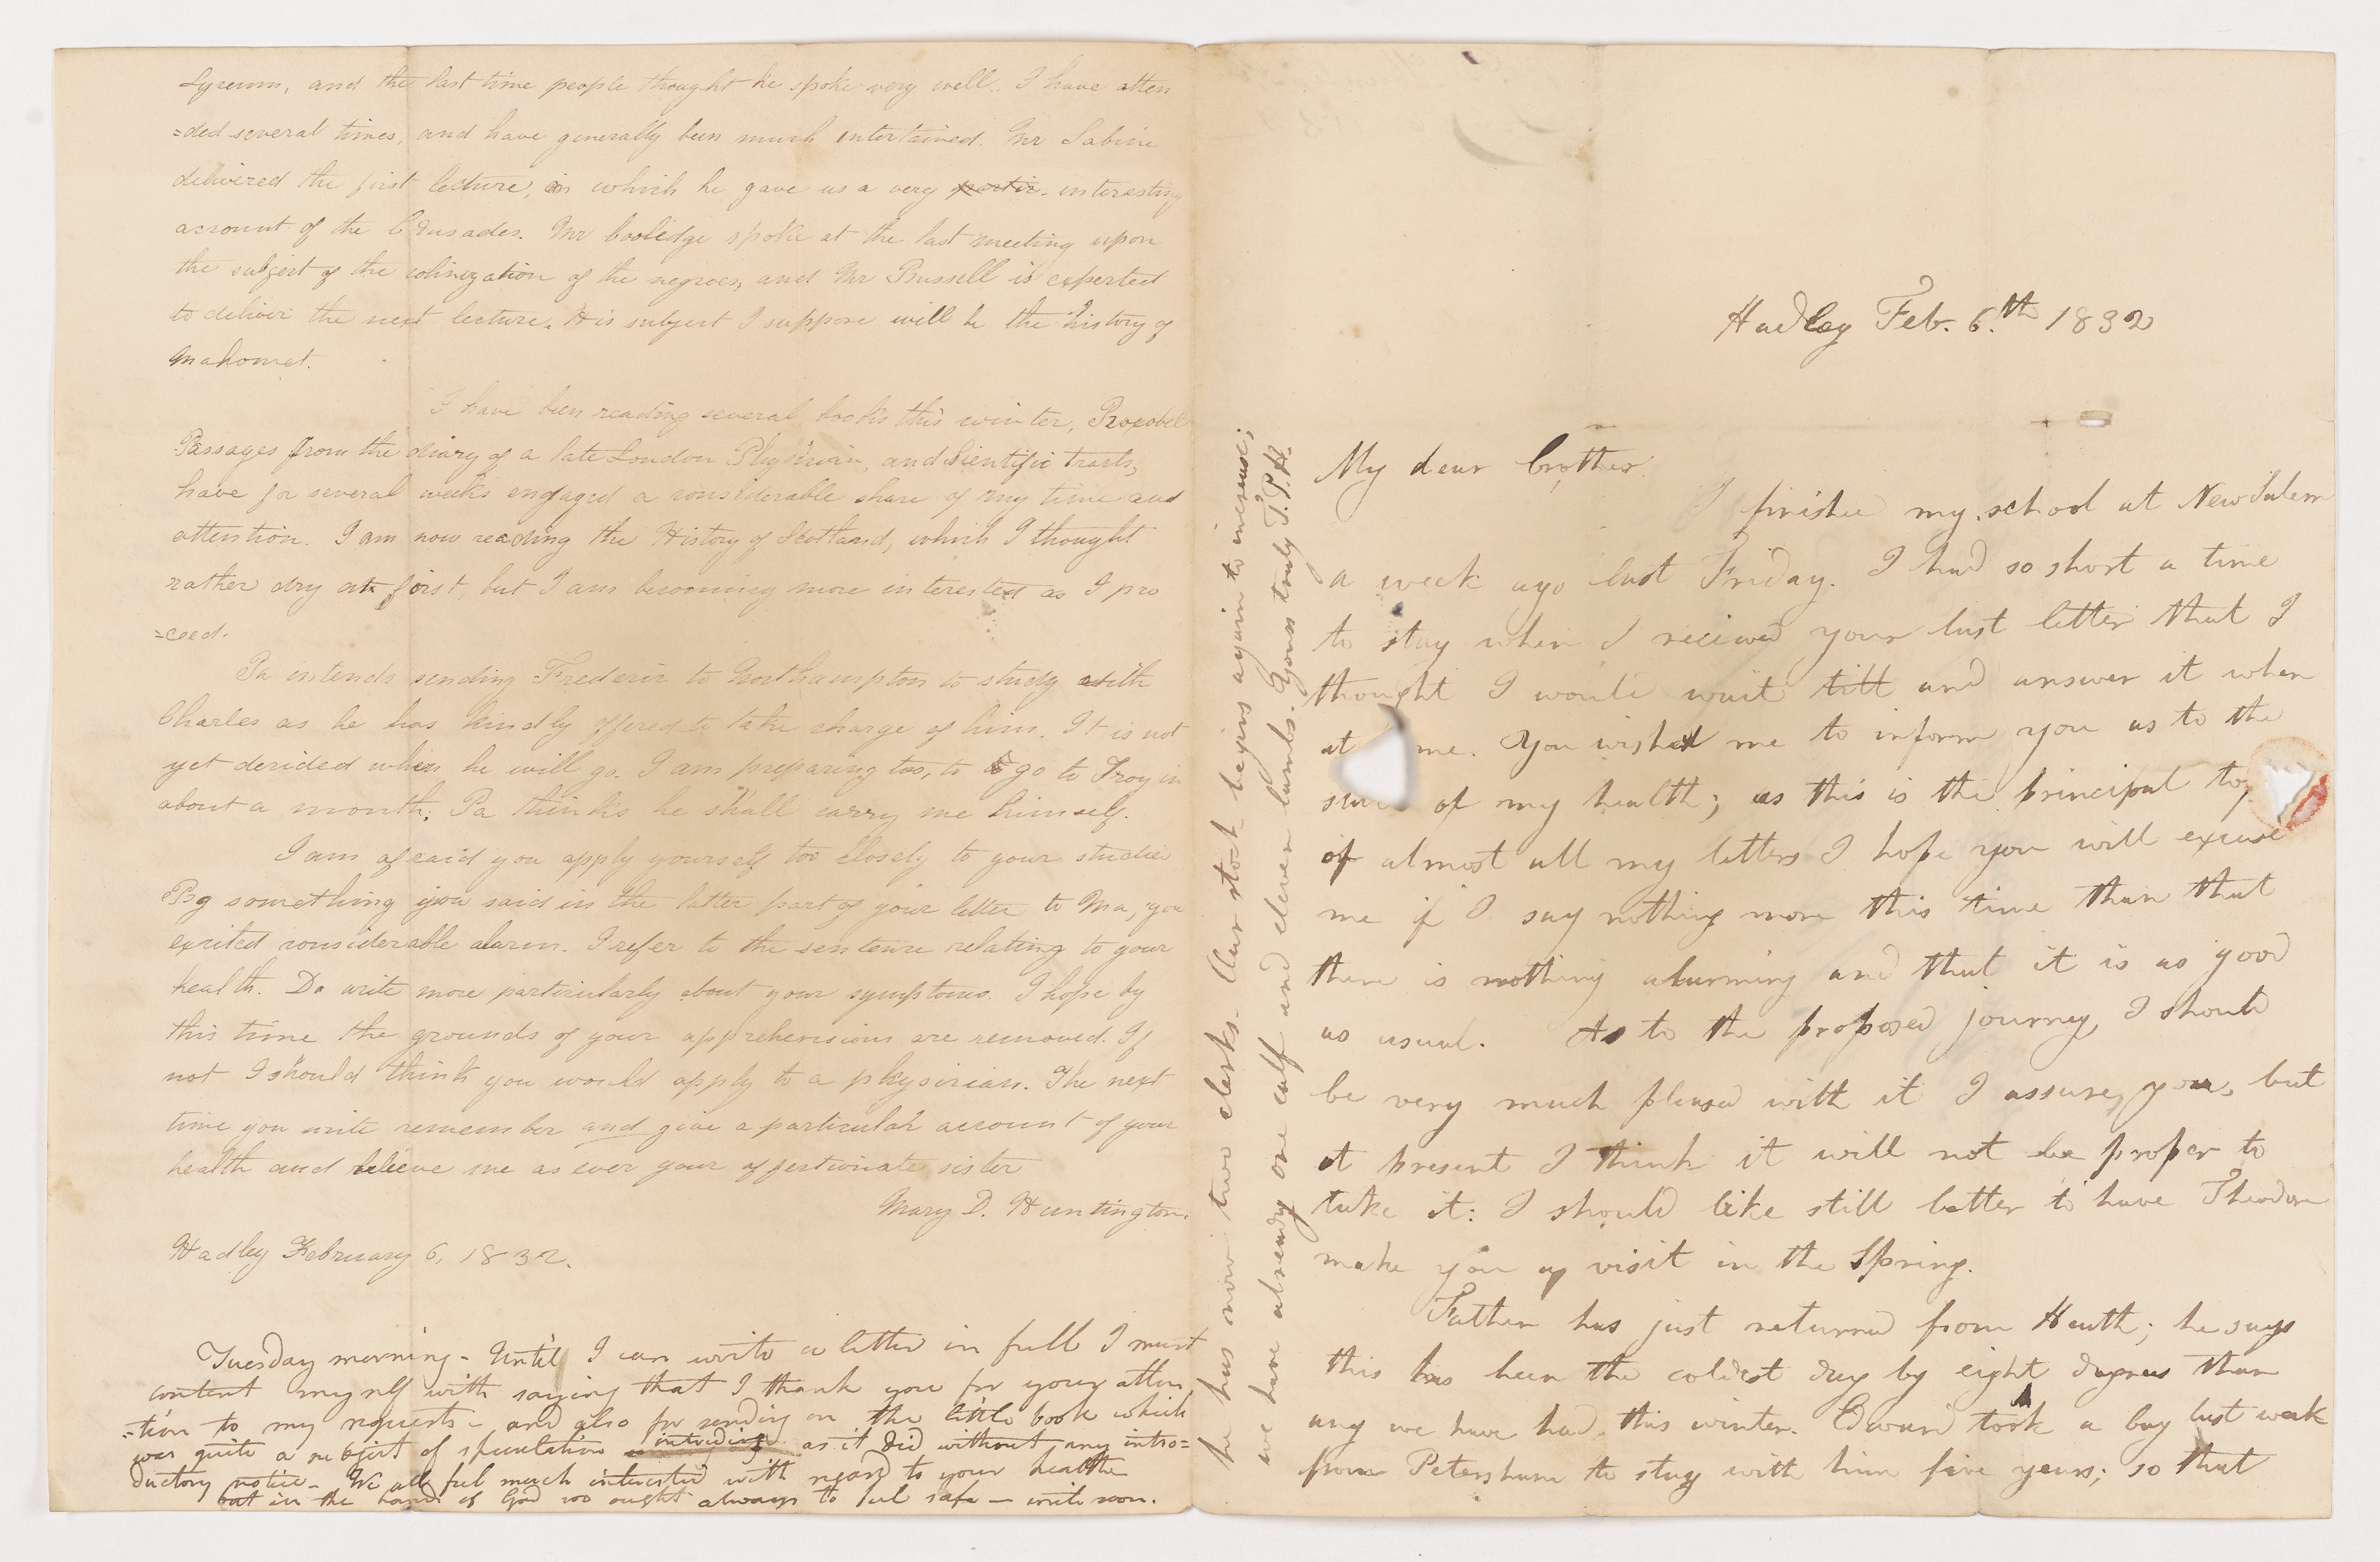 Lyceum, and the last time people thought he spoke very well. I have atten
=ded several times, and have generally been much entertained. Mr Sabine
delivered the first lecture, in which he gave us a very partic. interesting
account of the Crusades. Mr Cooledge spoke at the last meeting upon
the subject of the colinization of the negroes, and Mr Russell is expected
to deliver the next lecture. His subject I suppose will be the history of
Mahomet.
I have been reading several books this winter, Roxobel
Passages from the diary of a late London Physician, and Sientific tracts,
have for several weeks engaged a considerable share of my time and
attention. I am now reading the History of Scotland, which I thought
rather dry at first, but I am becoming more interested as I pro
=ceed.
Pa intends sending Frederic to Northampton to study with
Charles as he has kindly offered to take charge of him. It is not
yet decided when he will go. I am preparing too, to go to Troy in
about a month; Pa thinks he shall carry me himself.
I am afraid you apply yourself too closely to your studies
By something you said in the latter part of your letter to Ma, you
excited considerable alarm. I refer to the sentence relating to your
health. Do write more particularly about your symptoms. I hope by
this time the grounds of your apprehensions are removed. If
not I should think you would apply to a physician. The next
time you write remember and give a particular account of your
health and believe me as ever your affectionate sister
Mary D. Huntington.
Hadley February 6, 1832.
Tuesday morning - Until I can write a letter in full I must
content myself with saying that I thank you for your atten
=tion to my requests - and also for sending on the little book which
was quite a subject of speculation intruding as it did without any intro=
ductory notice - We all feel much interested with regard to your health
but in the hands of God we ought always to feel safe - write soon.
he has now two clerks. Our stock begins again to increase;
we have already one calf and eleven lambs. Yours truly T.P.H.
Hadley Feb. 6.th 1832
My dear brother.
I finished my school at New Salem
a week ago last Friday. I had so short a time
to stay when I received your last letter that I
thought I would wait till and answer it when
at me. You wished me to inform you as to the
state of my health; as this is the principal top
of almost all my letters I hope you will excuse
me if I say nothing more this time than that
there is nothing alarming and that it is as good
as usual. As to the proposed journey, I should
be very much pleased with it I assure you, but
at present I think it will not be proper to
take it: I should like still better to have Theodore
make you a visit in the Spring.
Father has just returned from Heath; he says
this has been the coldest day by eight degrees than
any we have had this winter. Edward took a boy last week
from Petersham to stay with him five years; so that